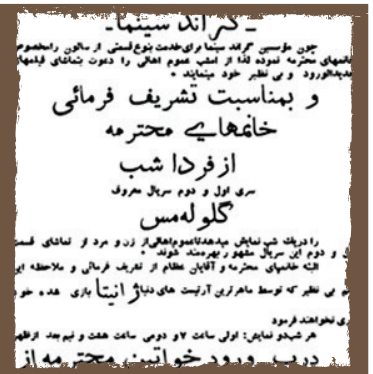 ـ گراند سینما ـ
چون مؤسسین گراند سینما برای خدمت بنوع قسمتی از سالون را مخصوص
خانمهای محترمه نموده لذا از امشب عموم اهالی را دعوت بتماشای فیلمهای
جدیدالورود و بی نظیر خود مینمایند *
و بمناسبت تشریف فرمائی
خانمهایی محترمه
از فردا شب
سری اول و دوم سریال معروف
گلوله مس
را دریك شب نمایش میدهد تا عموم اهالی از زن و مرد از تماشای قسمت
و دوم این سریال مشهور بهره مند شوند *
البته خانمهای محترمه و آقایان عظام از تشریف فرمائی و ملاحظه این
بی نظیر که توسط ماهرترین آرتیست های دنیا ژانیتا بازی شده
نخواهند فرمود
هر شب دو نمایش: اولی ساعت ۷ و دومی ساعت هشت و نیم بعد از ظهر
درب ورود خواتین محترمه از